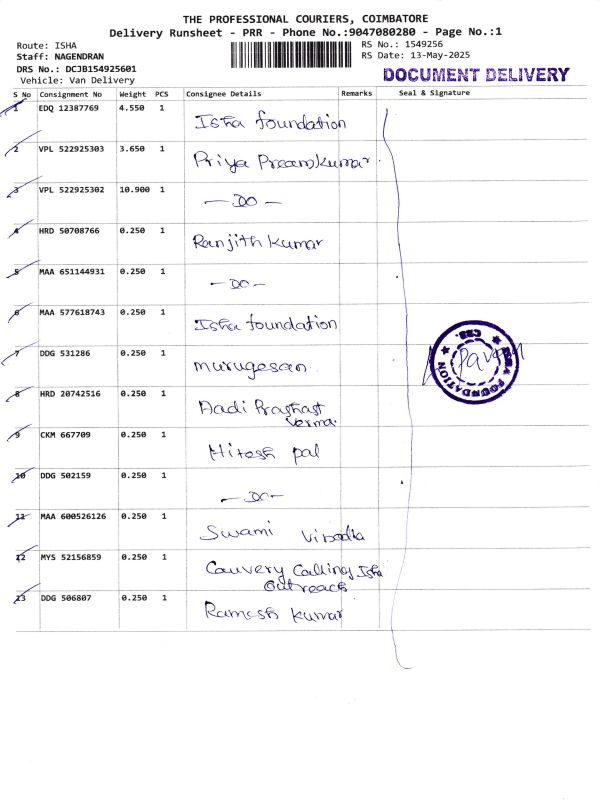 THE PROFESSIONAL COURIERS, COIMBATORE
Delivery Runsheet - PRR - Phone No.:9047080280 - Page No.:1
Route: ISHA
Staff: NAGENDRAN
DRS No.: DCJB154925601
Vehicle: Van Delivery
RS No.: 1549256
RS Date: 13-May-2025
DOCUMENT DELIVERY
S No Consignment No Weight PCS Consignee Details Remarks Seal & Signature
1 EDQ 12387769 4.550 1 Isha foundation
2 VPL 522925303 3.650 1 Priya Preamkumar.
3 VPL 522925302 10.900 1 — DO —
4 HRD 50708766 0.250 1 Ranjith Kumar
5 MAA 651144931 0.250 1 — DO —
6 MAA 577618743 0.250 1 Isha foundation
7 DDG 531286 0.250 1 murugesan
8 HRD 20742516 0.250 1 Aadi Prashast
Verma.
9 CKM 667709 0.250 1 Hitesh pal
10 DDG 502159 0.250 1 — DO —
11 MAA 600526126 0.250 1 Swami
12 MYS 52156859 0.250 1 Cauvery Calling Isha
Outreach
13 DDG 506807 0.250 1 Ramesh Kumar
ISHA FOUNDATION
CBE.
Pavan